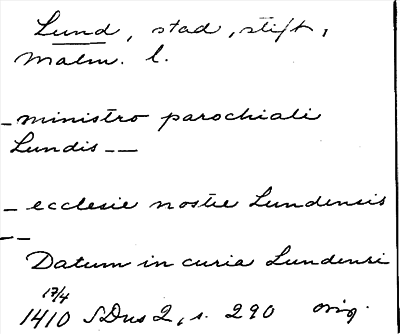 Lund, stad, stift,
Malm. l.
_ ministro parochiali
Lundis _ _
_ ecclesie nostre Lundensis
_ _
Datum in curia Lundensi
17/4
1410 SDns 2, s. 290 orig.